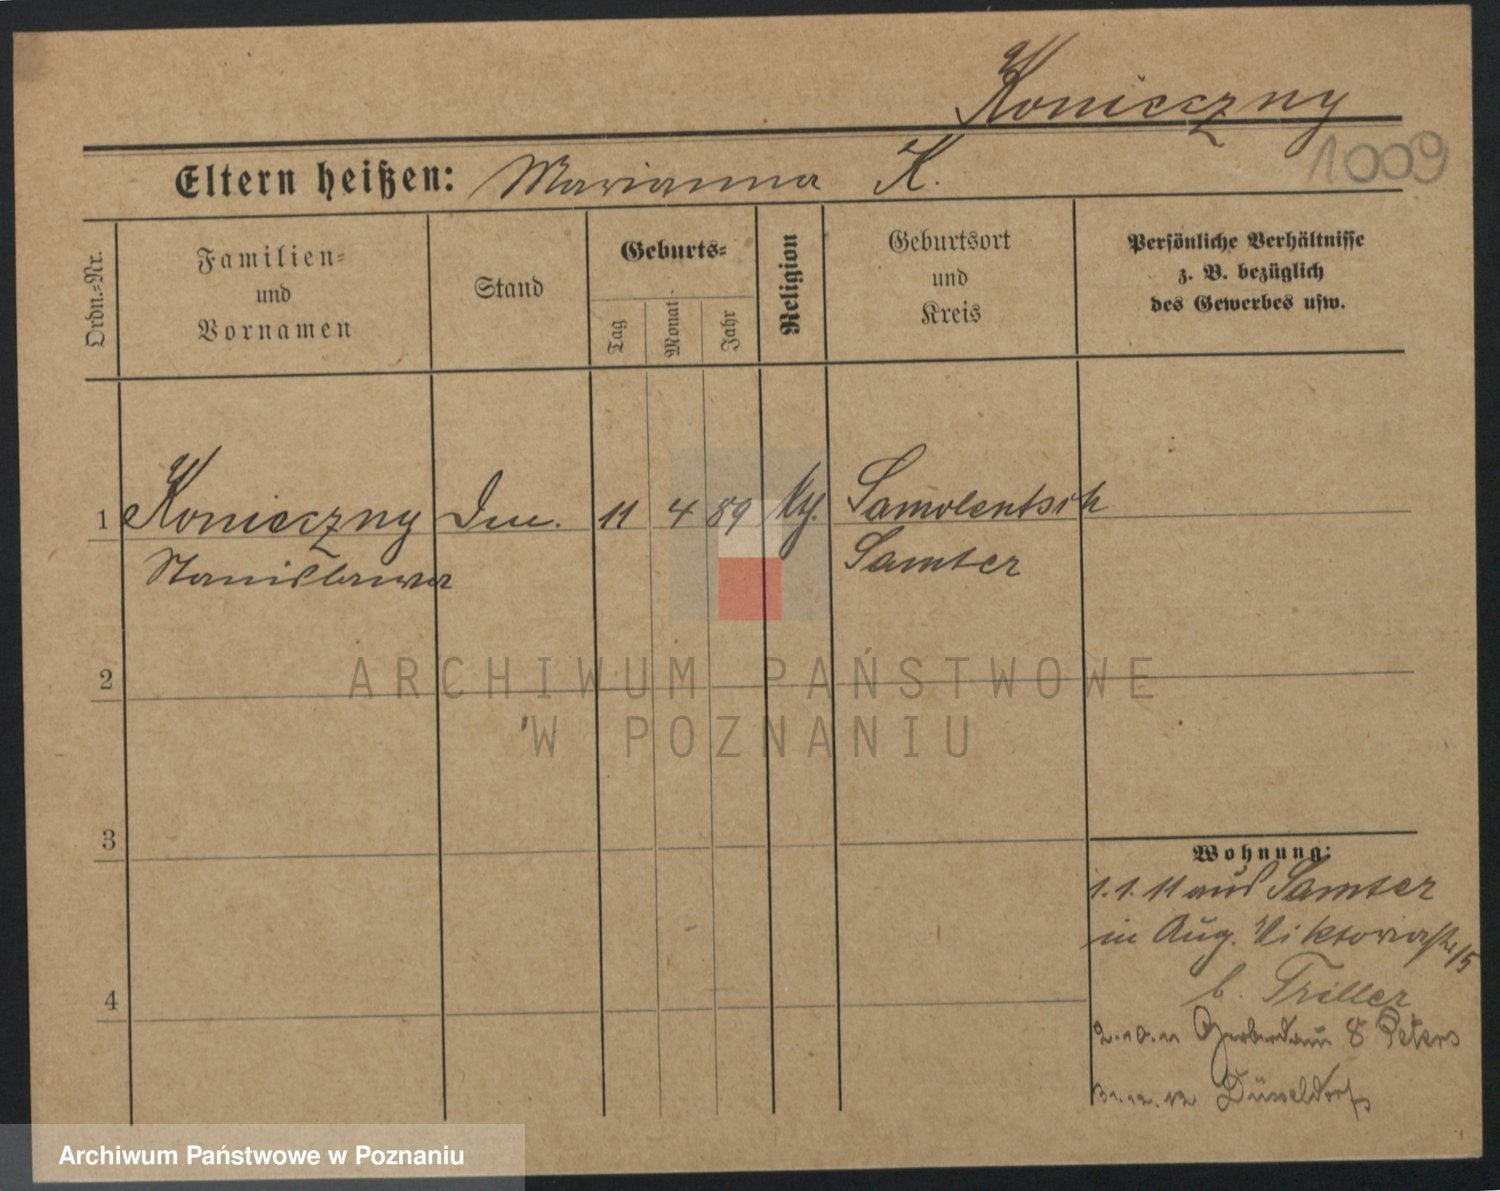 Konieczny
1009
Eltern heißen: Marianna K.
Ordn.-Nr.
Familien-
und
Vornamen
Stand
Geburts-
Tag
Monat
Jahr
Religion
Geburtsort
und
Kreis
Persönliche Verhältnisse
z. B. bezüglich
des Gewerbes usw.
1 Konieczny 11 4 89 Samolentsch
Stanislawa Samter
2
3
4
Wohnung:
1.1.11 aus Samter
in Aug. Viktoriastr 15
b. Triller
2.10.11 8 Peters
31.12.12 Düsseldorf
ARCHIWUM PAŃSTWOWE
W POZNANIU
Archiwum Państwowe w Poznaniu